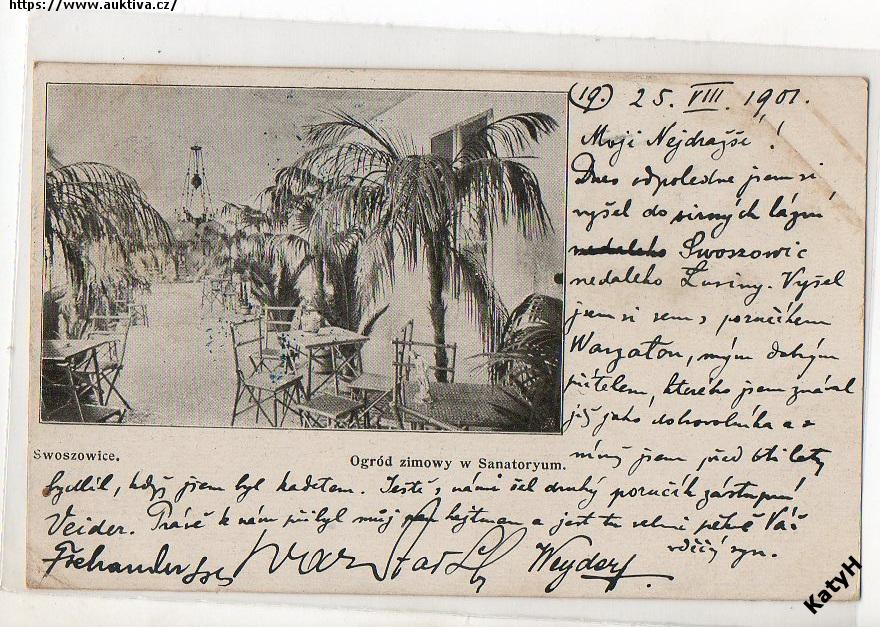 https://www.auktiva.cz/
(19.) 25. VIII. 1901.
Moji Nejdražší!
Dnes odpoledne jsem si
vyšel do sirných lázní
nedaleko Swoszowic
nedaleko Lusiny. Vyšel
jsem si sem s poručíkem
mým dobrým
přítelem, kterého jsem znával
již jako dobrovolníka a s
nímž jsem před lety
Swoszowice.
Ogród zimowy w Sanatoryum.
bydlil, když jsem byl kadetem. Ještě s námi šel druhý poručík zástupní
Veider. Právě k nám přibyl můj pan hejtman a jest tu velmi pěkně Váš
vděčný syn.
KatyH